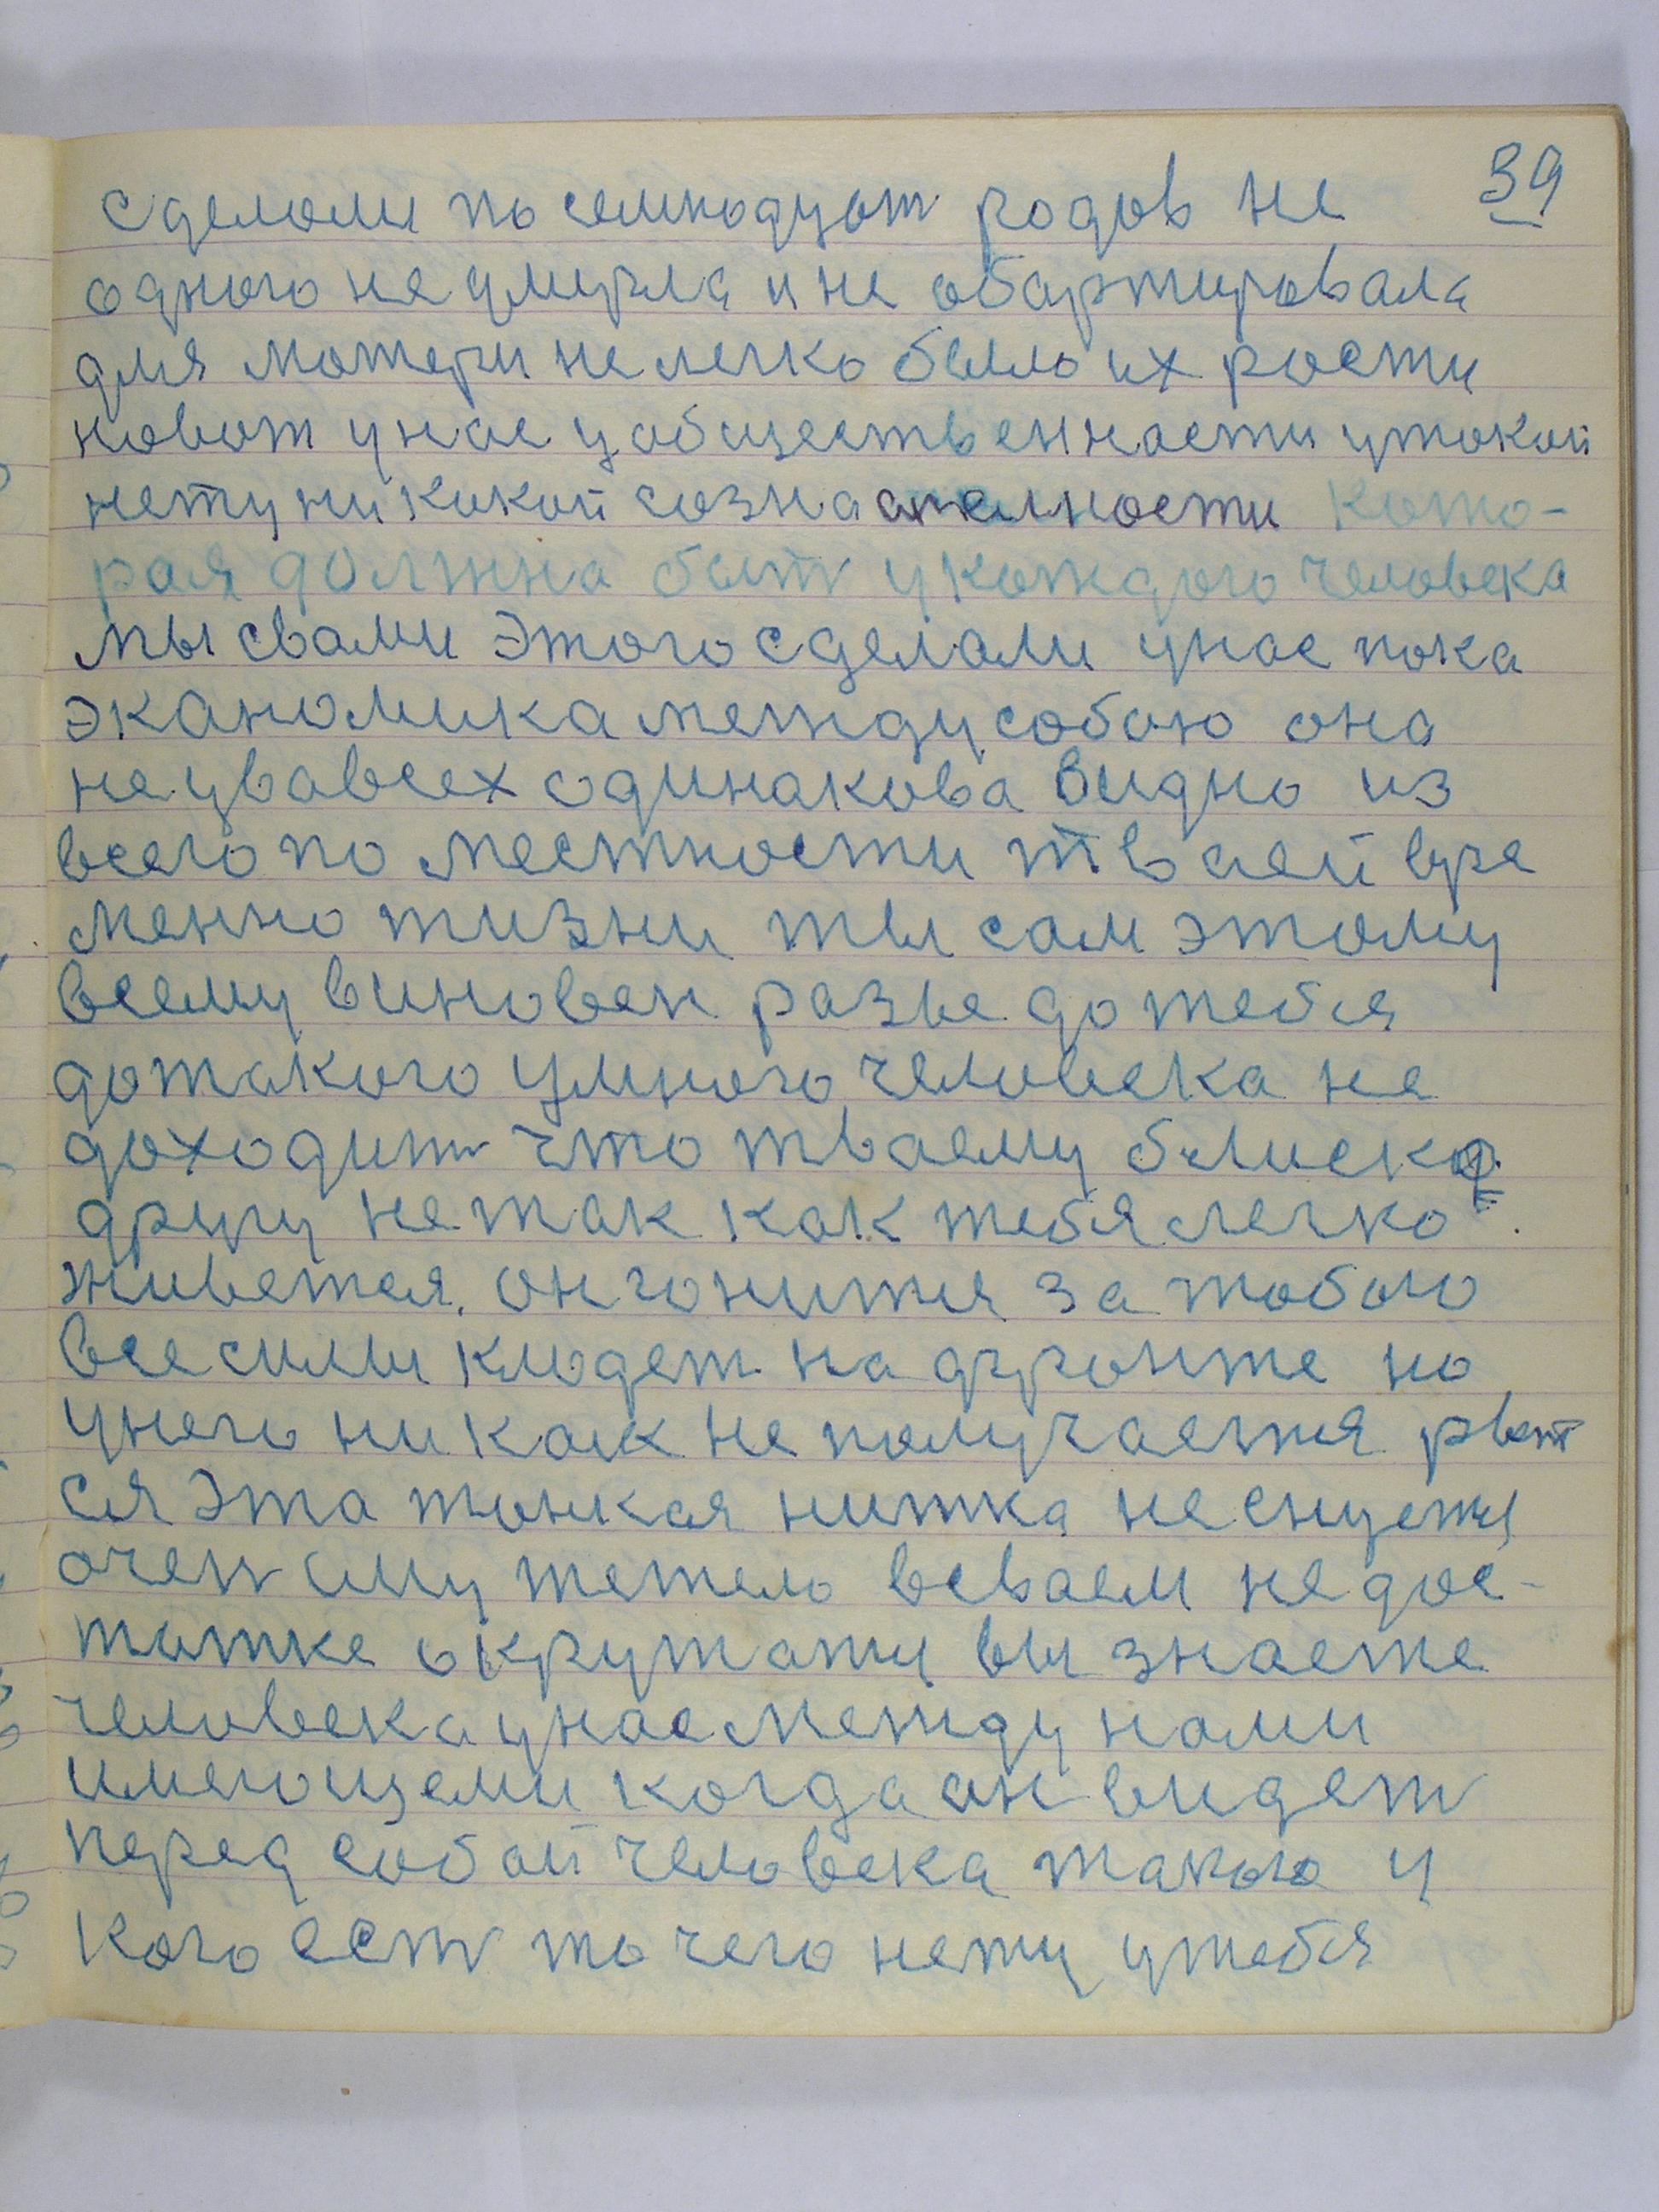 39
сделали по семнодцат родов не
одного не умирла и не обартировала
для мотери не легко было их рости
но вот у нас у общественности у токой
нету ни какой созна ателности кото-
рая должна быт у кождого человека
мы свами этого сделали унас пока
экономика между собою она
не у вавсех одинакова видно из
всего по местности тваей вре
менно жизни ты сам этому
всему виновен разве до тебя
до такого умного человека не
доходит что тваему блиско
другу не так как тебя легко
живется. он гонится за тобою
все силы кладет на фронте но
унего ни как не получается рвет
ся эта тонкая нитка не снуется
очен ему тежело всваем недос-
татке окружаты вы знаете
человека унас между нами
имеющеми когда он видет
перед собой человека такого у
кого ест то чего нету утебя